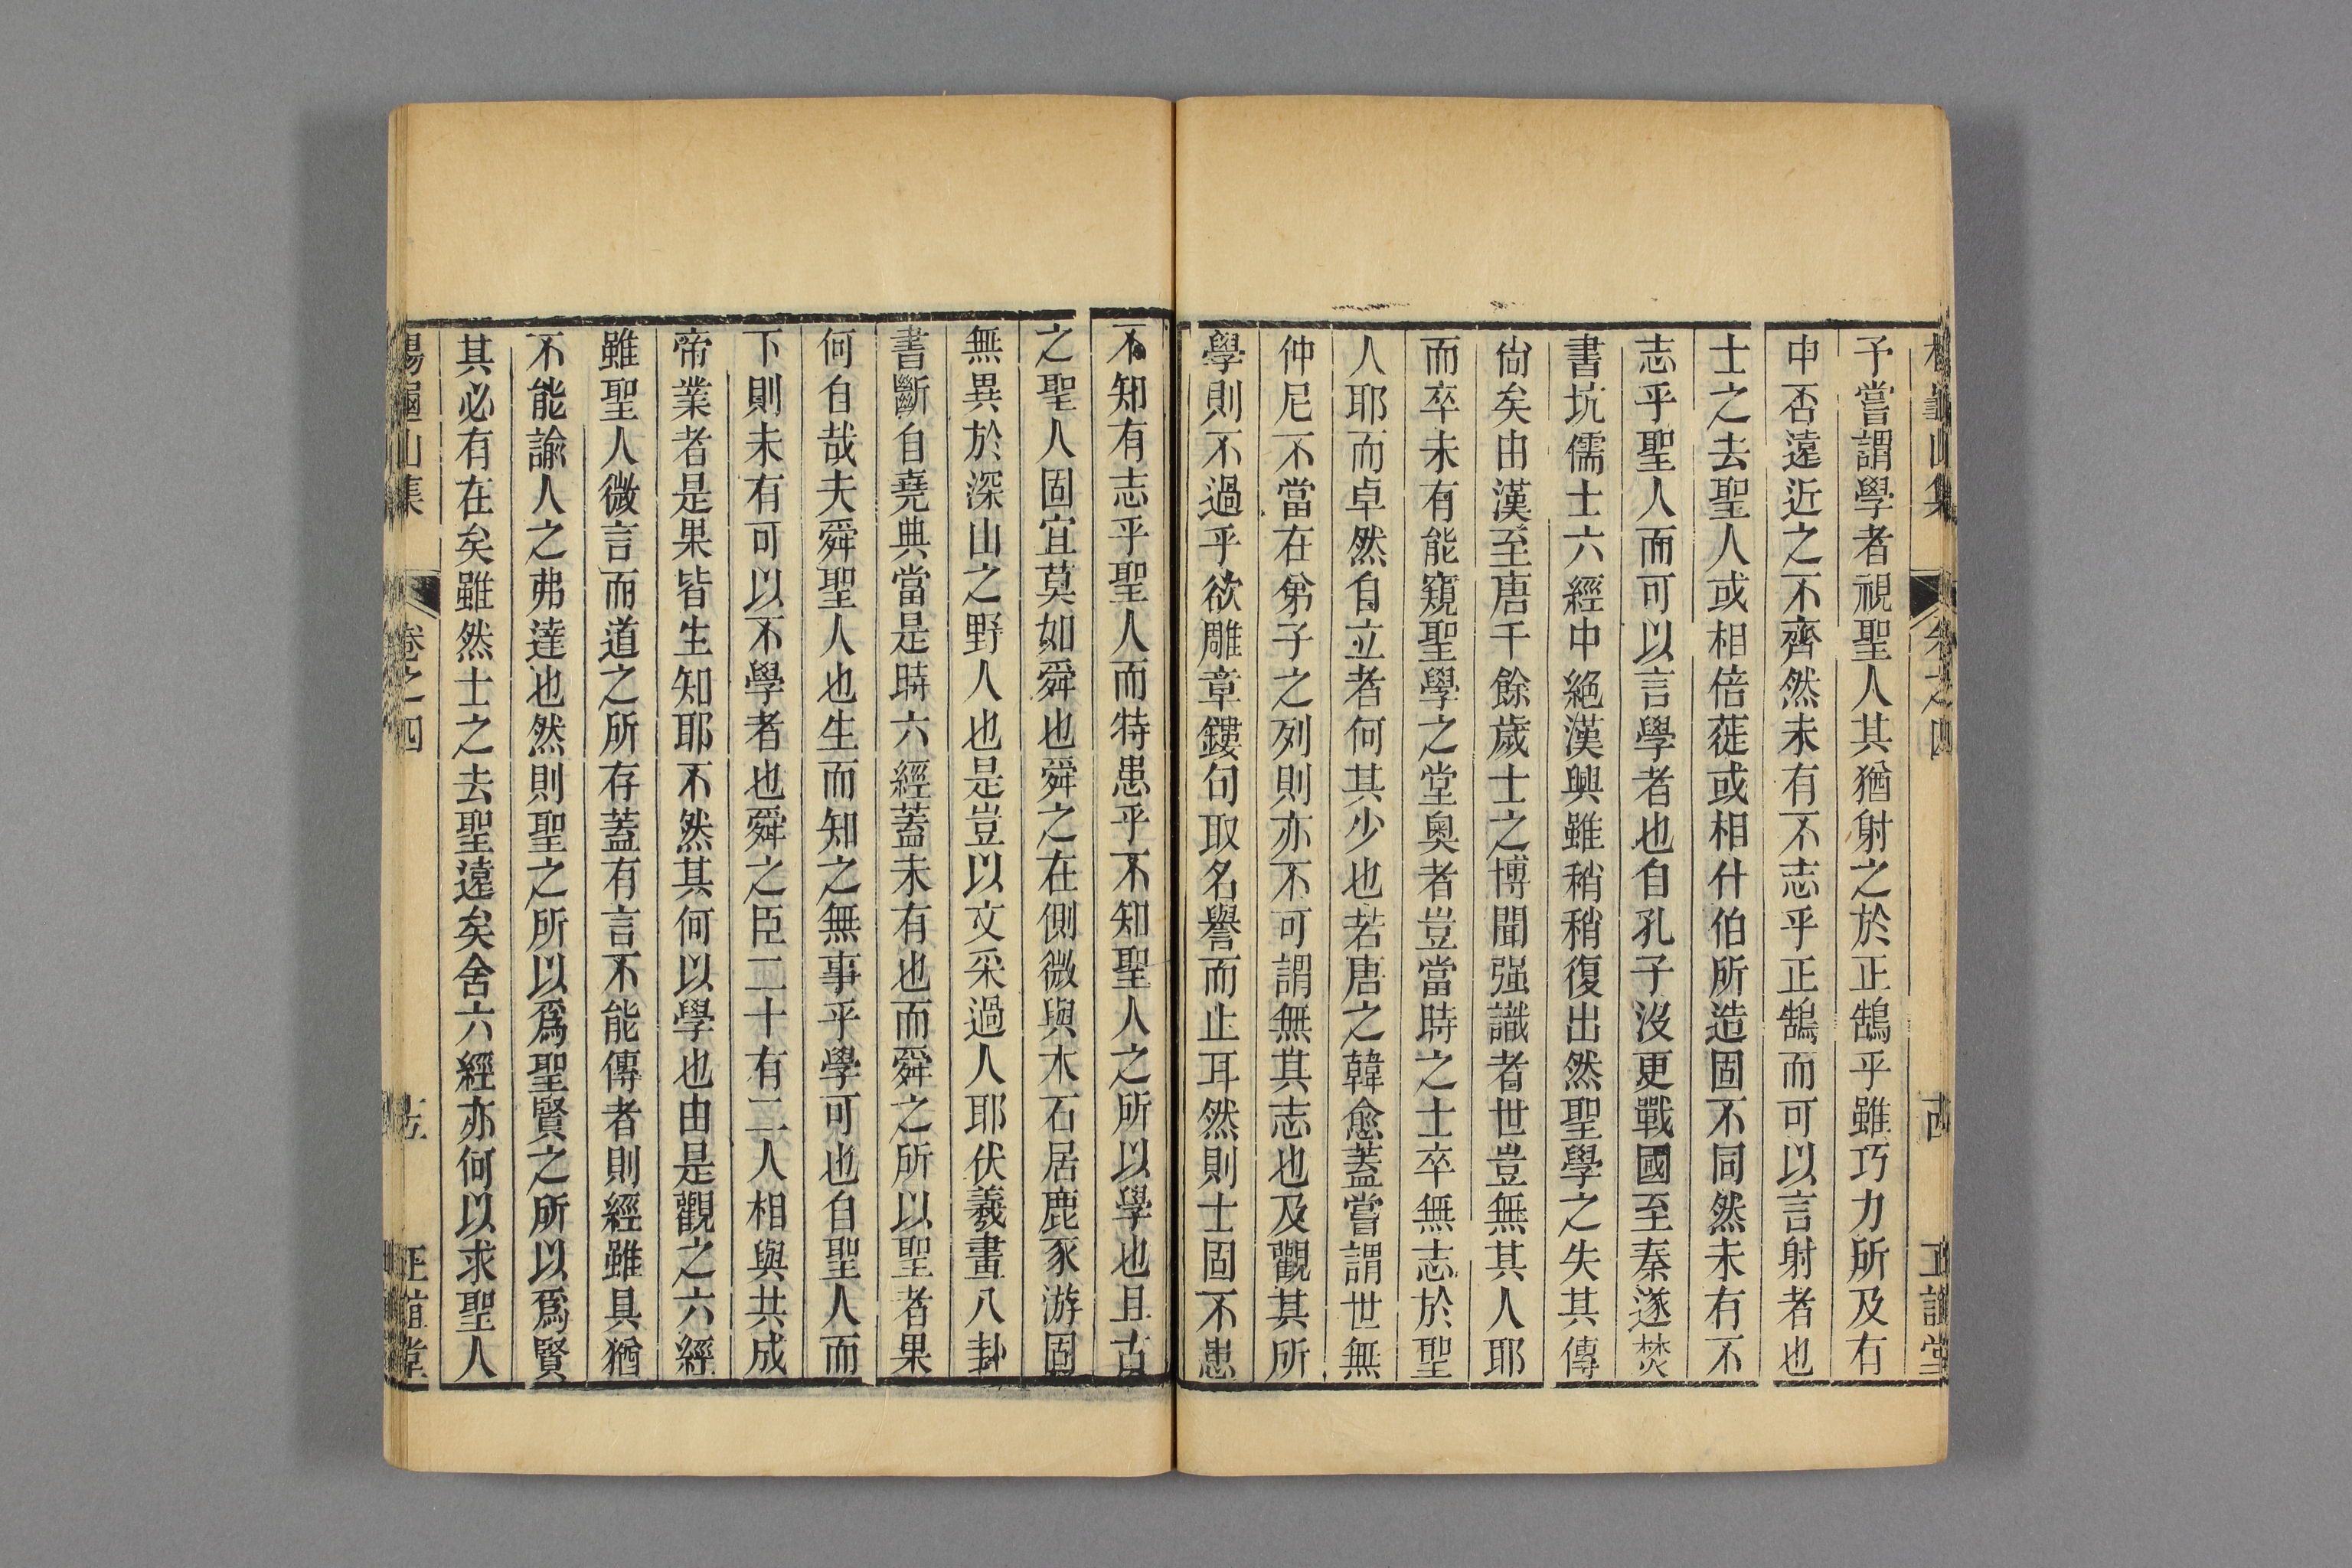 予嘗謂學者視聖人其猶射之於正鵠乎雖巧力所及有
中否遠近之不齊然未有不志乎正鵠而可以言射者也
士之去聖人或相倍蓗或相什伯所造固不同然未有不
志乎聖人而可以言學者也自孔子沒更戰國至秦遂焚
書坑儒士六經中絕漢興雖稍稍復出然聖學之失其傳
尙矣由漢至唐千餘歲士之博聞强識者世豈無其人耶
而卒未有能窺聖學之堂奧者豈當時之士卒無志於聖
人耶而卓然自立者何其少也若唐之韓愈蓋嘗謂世無
仲尼不當在弟子之列則亦不可謂無其志也及觀其所
學則不過乎欲雕章鏤句取名譽而止耳然則士固不患
不知有志乎聖人而特患乎不知聖人之所以學也且古
之聖人固宜莫如舜也舜之在側微與木石居鹿豕游固
無異於深山之野人也是豈以文采過人耶伏羲畫八卦
書斷自堯典當是時六經蓋未有也而舜之所以聖者果
何自哉夫舜聖人也生而知之無事乎學可也自聖人而
下則未有可以不學者也舜之臣二十有二人相與共成
帝業者是果皆生知耶不然其何以學也由是觀之六經
雖聖人微言而道之所存蓋有言不能傳者則經雖具猶
不能諭人之弗達也然則聖之所以爲聖賢之所以爲賢
其必有在矣雖然士之去聖遠矣舍六經亦何以求聖人
楊龜山集 卷之四 正誼堂